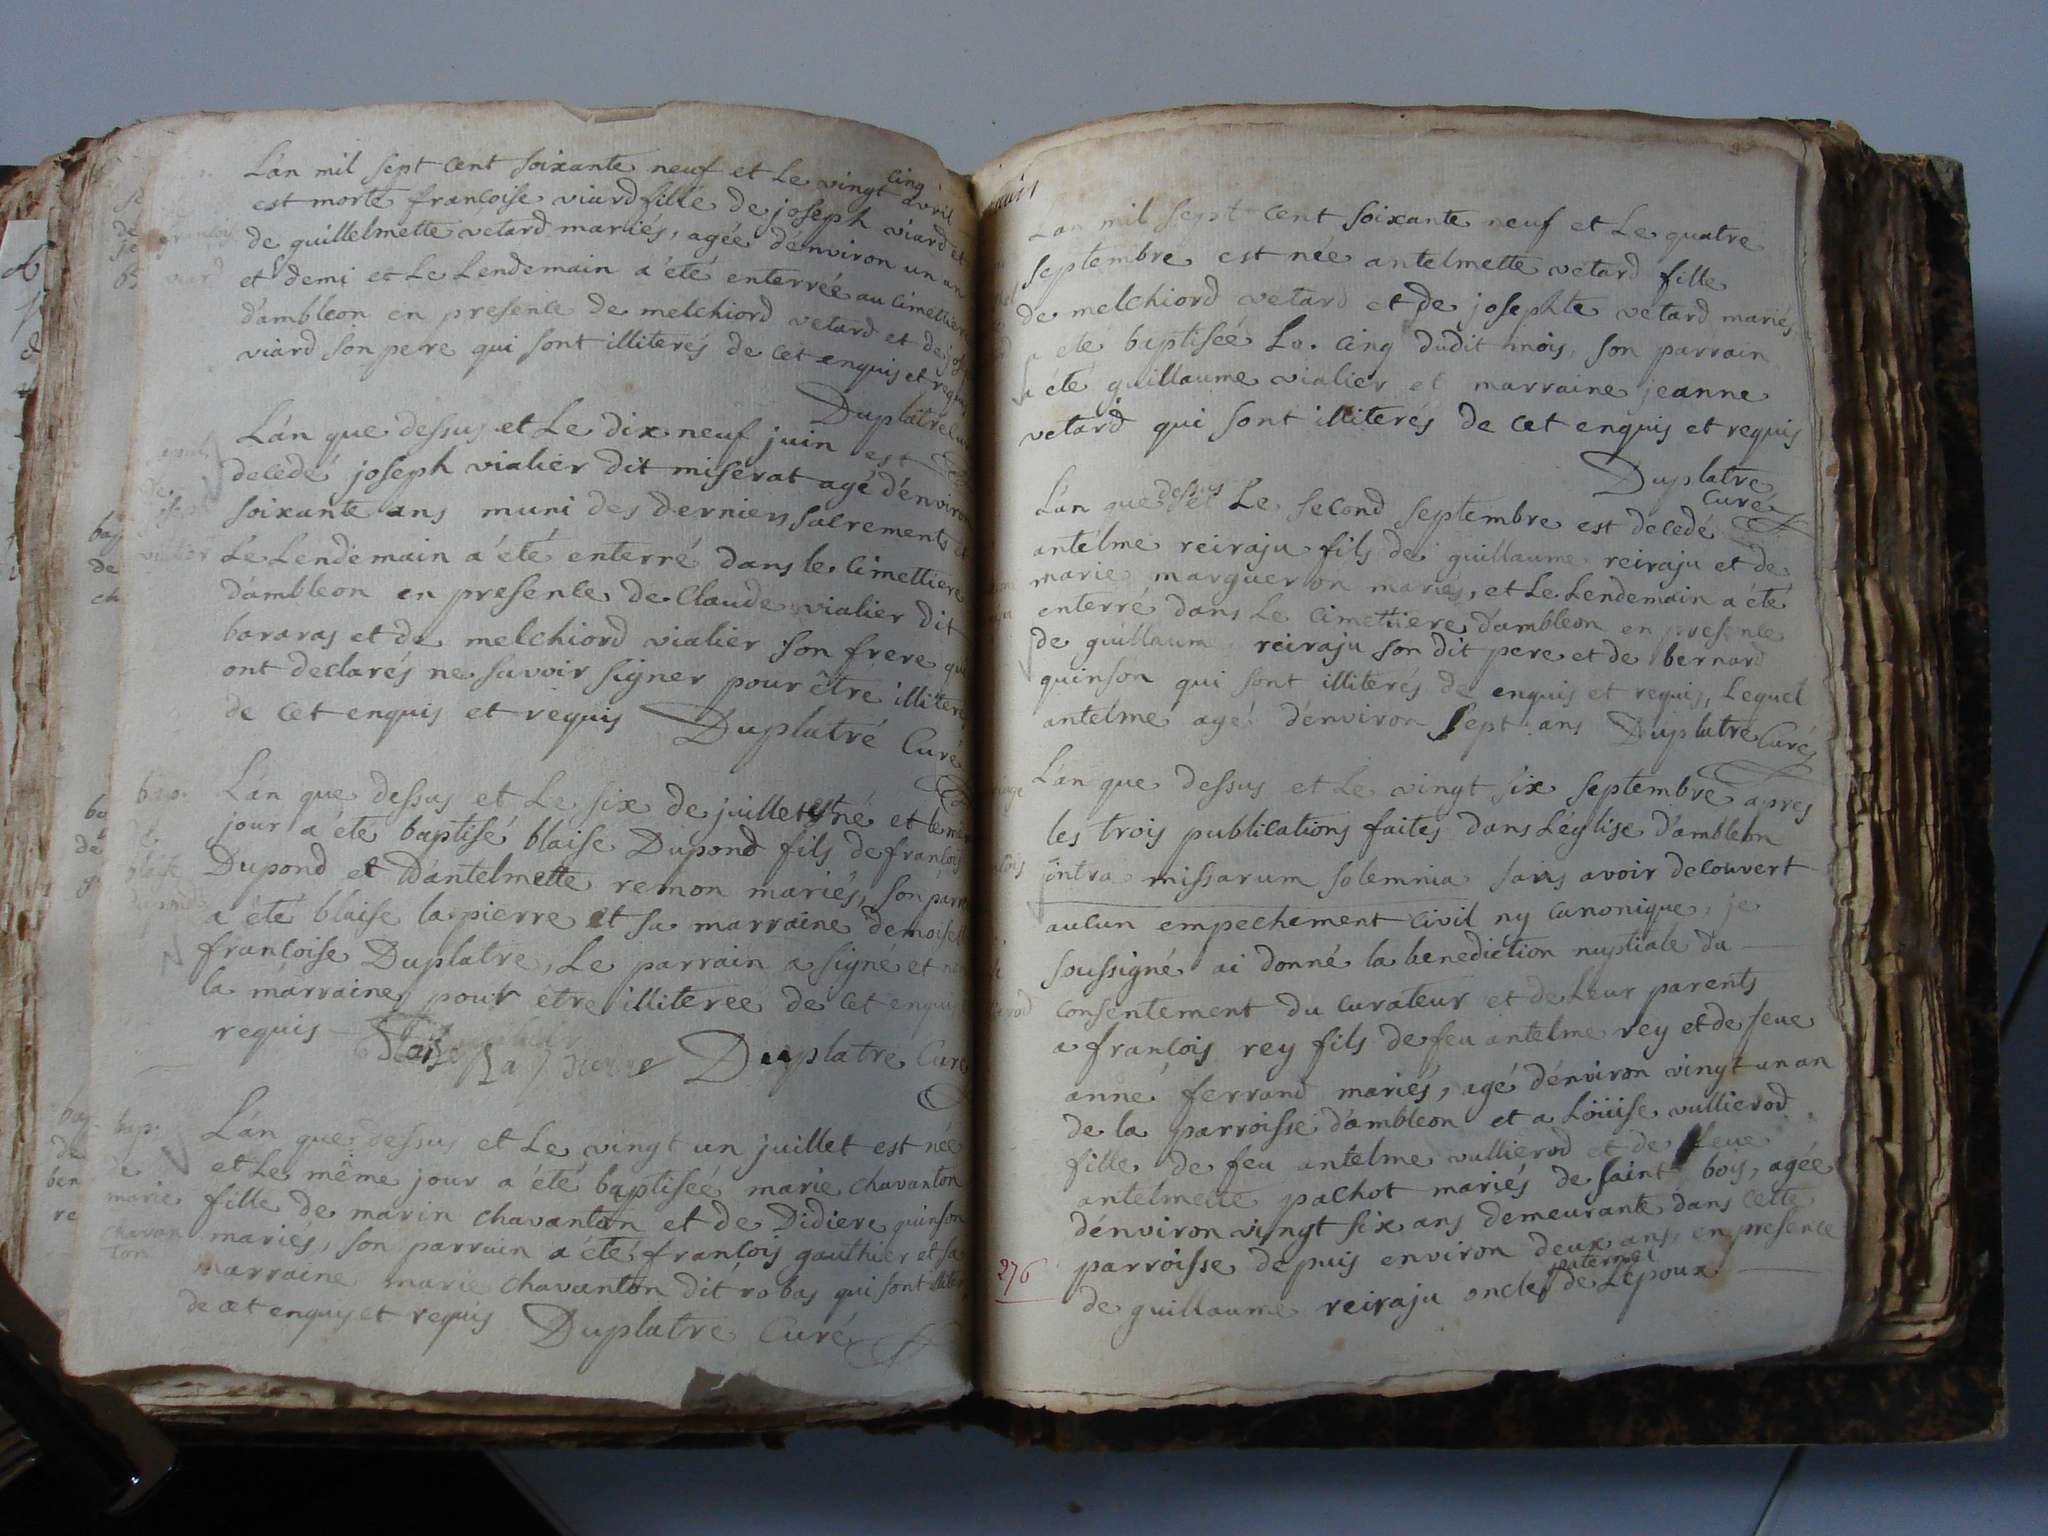 L'an mil sept cent soixante neuf et Le vingt cinq avril
est morte françoise viard fille de joseph viard et
de guillelmette vetard mariés, agée d'énviron un an
et demi et Le Lendemain a été enterrée au cimettiere
d'ambleon en presence de melchiord vetard et de
viard son pere qui sont illiterés de cet enquis et requis
Duplatre
L'an que dessus et Le dix neuf juin est
decedé joseph vialier dit miserat agé d'énviron
soixante ans muni des derniers sacrements et
Le Lendemain a été enterré dans le cimettiere
d'ambleon en presence de Claude vialier dit
bararas et de melchiord vialier son frere qui
ont declarés ne savoir signer pour être illiteres
de cet enquis et requis Duplatre Curé
bap.
de
blaise
dupond
L'an que dessus et Le six de juillet est né et le même
jour a été baptisé blaise Dupond fils de françois
Dupond et D'antelmette remon mariés, son parrain
a été blaise la pierre et sa marraine demoiselle
françoise Duplatre, Le parrain a signé et non
la marraine pour être illiteree de cet enquis
requis Blaise La pierre Duplatre Curé
bap.
de
marie
chavan
ton
L'an que dessus et Le vingt un juillet est née
et Le même jour a été baptisée marie chavanton
fille de marin chavanton et de Didiere quinson
mariés, son parrain a été françois gauthier et sa
marraine marie chavanton dit robas qui sont
de cet enquis et requis Duplatre Curé
L'an mil sept cent soixante neuf et Le quatre
septembre est née antelmette vetard fille
de melchiord vetard et de josephte vetard mariés
a été baptisée Le cinq dudit mois, son parrain
a été guillaume vialier et marraine jeanne
vetard qui sont illiterés de cet enquis et requis
Duplatre
Curé
L'an que dessus et Le second septembre est decedé
antelme reiraju fils de guillaume reiraju et de
marie margueron mariés, et Le Lendemain a été
enterré dans Le cimettiere d'ambleon en presence
de guillaume reiraju son dit pere et de bernard
quinson qui sont illiterés de enquis et requis, Lequel
antelme agé d'énviron sept ans Duplatre Curé
L'an que dessus et Le vingt six septembre apres
les trois publications faites dans L'église d'ambleon
intra missarum solemnia sans avoir decouvert
aucun empechement civil ny canonique, je
soussigné ai donné la benediction nuptiale du
consentement du curateur et de Leur parents
a françois rey fils de feu antelme rey et de feue
anne ferrand mariés, agé d'énviron vingt un an
de la parroisse d'ambleon et a Loüise vullierod
fille de feu antelme vullierod et de feue
antelmette pachot mariés de saint bois, agée
d'énviron vingt six ans demeurante dans cette
parroisse depuis environ deux ans, en presence
276 de guillaume reiraju oncle paternel de Lepoux